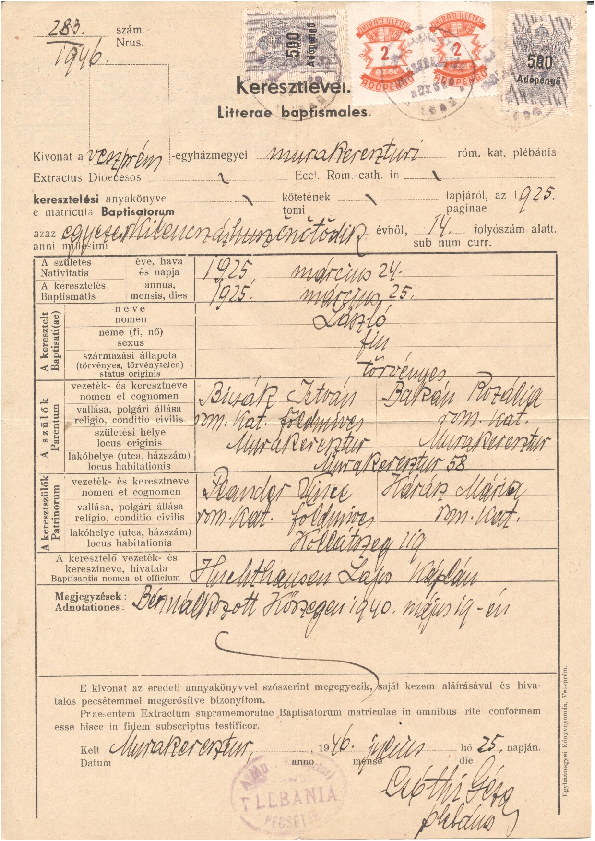 283 szám.
1946. Nrus.
500 Adópengő
2 ADÓPENGŐ
2 ADÓPENGŐ
500 Adópengő
Keresztlevél.
Litterae baptismales.
Kivonat a veszprém -egyházmegyei murakereszturi róm. kat. plébánia
Extractus Dioecesos Eccl. Rom. cath. in
keresztelési anyakönyve kötetének lapjáról, az 1925.
e matricula Baptisatorum tomi paginae
azaz egyezerkilencszázhuszonötödik évből, 14. folyószám alatt.
anni mille-imi sub num curr.
A születés éve, hava 1925 március 24.
Nativitatis és napja
A keresztelés annus, 1925. március 25.
Baptismatis mensis, dies
A keresztelt
Baptisati(ae)
neve László
nomen
neme (fi, nő) fiú
sexus
származási állapota törvényes
(törvényes, törvénytelen)
status originis
A szülők
Parentum
vezeték- és keresztneve István Rozália
nomen et cognomen
vallása, polgári állása rom. kat. földmíves rom. kat.
religio, conditio civilis
születési helye Murakeresztur Murakeresztur
locus originis
lakóhelye (utca, házszám) Murakeresztur 58
locus habitationis
A keresztszülők
Patrinorum
vezeték- és keresztneve Mária
nomen et cognomen
vallása, polgári állása rom. kat. földmíves rom. kat.
religio, conditio civilis
lakóhelye (utca, házszám)
locus habitationis
A keresztelő vezeték- és Lajos káplán
keresztneve, hivatala
Baptisantis nomen et officium
Megjegyzések: Bérmálkozott Kőszegen 1940. május 19-én
Adnotationes:
E kivonat az eredeti annyakönyvvel szószerint megegyezik, saját kezem aláírásával és hiva-
talos pecsétemmel megerősítve bizonyítom.
Praesentem Extractum supramemoratae Baptisatorum matriculae in omnibus rite conformem
esse hisce in fidem subscriptus testificor.
Kelt Murakeresztur, 1946 július hó 25. napján.
Datum anno mense die
PLEBÁNIA
PECSÉTJE
Géza
plébános
Egyházmegyei Könyvnyomda, Veszprém.